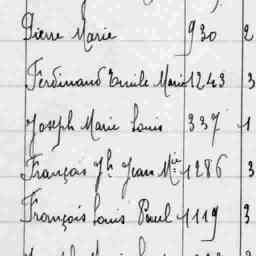 Pierre Marie 930 2
Ferdinand Emile Marie 1243 3
Joseph Marie Louis 337 1
François Jh Jean Mie 1286 3
François Louis Paul 1119 3